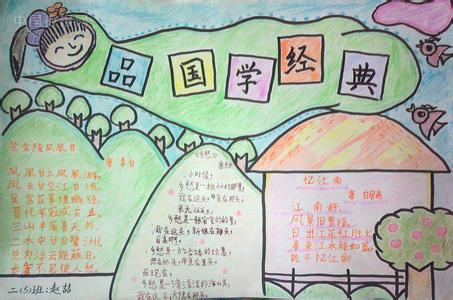 品国学经典
登金陵凤凰台
唐 李白
凤凰台上凤凰游,
凤去台空江自流。
吴宫花草埋幽径,
晋代衣冠成古丘。
三山半落青天外,
二水中分白鹭洲。
总为浮云能蔽日,
长安不见使人愁。
二(5)班:赵喆
《乡愁》
余光中
小时候,
乡愁是一枚小小的邮票,
我在这头,母亲在那头。
长大以后,
乡愁是一张窄窄的船票,
我在这头,新娘在那头。
后来啊,
乡愁是一方矮矮的坟墓,
我在外头,母亲在里头。
而现在,
乡愁是一湾浅浅的海峡,
我在这头,大陆在那头。
忆江南
唐 白居易
江南好,
风景旧曾谙。
日出江花红胜火,
春来江水绿如蓝,
能不忆江南